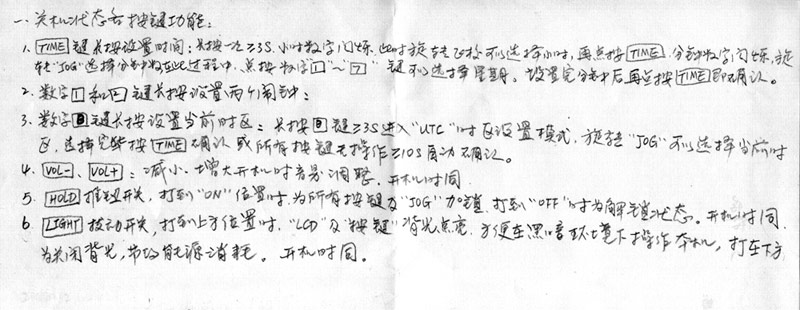 一. 关机状态各按键功能:
1. TIME 键 长按设置时间: 长按一次≥3S. 小时数字闪烁. 此时旋转飞梭可以选择小时, 再点按 TIME. 分钟数字闪烁, 旋
转"JOG"选择分钟数. 在此过程中, 点按数字 1 "~" 7 键可以选择星期. 设置完分钟后再点按 TIME 即可确认。
2. 数字 1 和 2 键长按设置两个闹钟:
3. 数字 键长按设置当前时区: 长按 键≥3S进入"UTC"时区设置模式. 旋转"JOG"可以选择当前时
区, 选择完毕按 TIME 确认 或所有按键无操作≥10S自动确认。
4. VOL-、VOL+: 减小、增大开机时音量调整. 开机时同
5. HOLD 推动开关, 打到"ON"位置时. 为所有按键及"JOG"加锁. 打到"OFF"时为解锁状态。开机时同.
6. LIGHT 拨动开关, 打到上方位置时. "LCD"及"按键"背光点亮. 方便在黑暗环境下操作本机, 打在下方
为关闭背光, 节约能源消耗。开机时同。